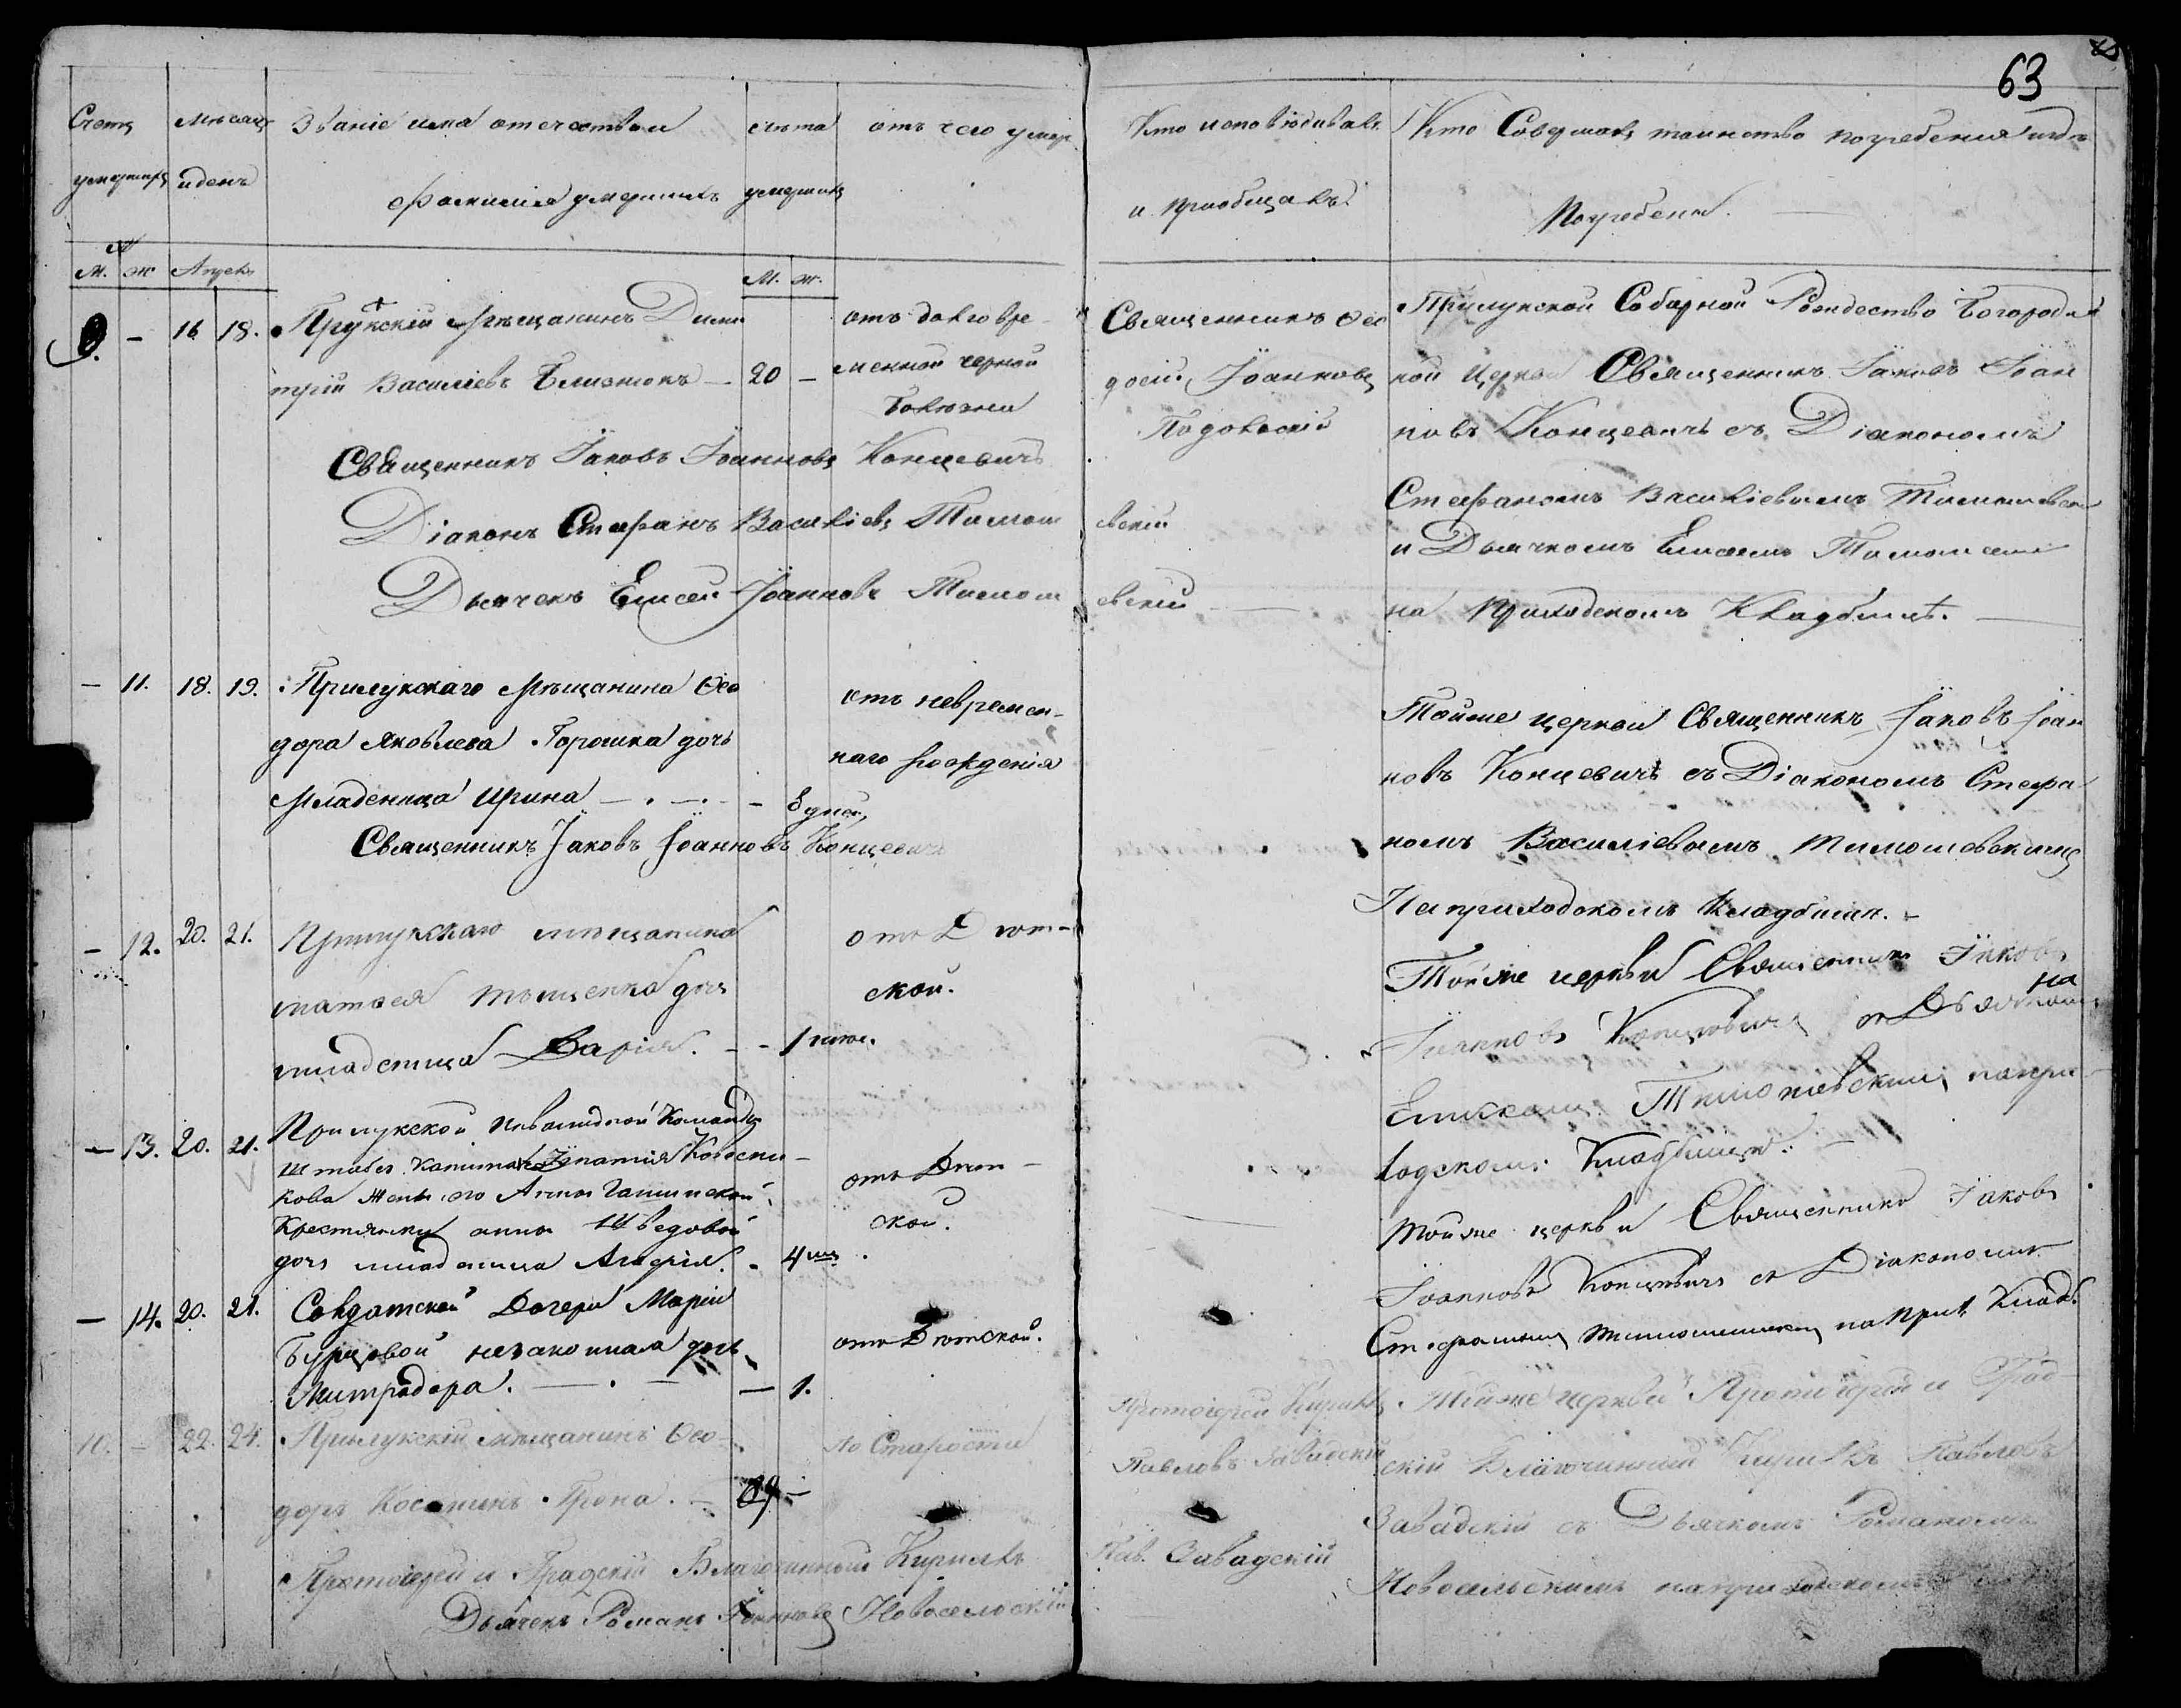 63
Счетъ
умершихъ
Мѣсяцъ
и день
Званіе имя отечество и
фамилія умершихъ
лѣта
умершихъ
отъ чего умеръ
Кто исповѣдивалъ
и пріобщалъ.
Кто Совершалъ таинство погребенія и гдѣ
Погребены.
М. ж Апрель
М. ж.
9. – 16 18. Прилукскій Мѣщанинъ Дими
трій Василіевъ Близнюкъ — 20 –
отъ долговре
менной черной
болѣзни
Священникъ Ѳео
досій Іоанновъ
Подольскій
Прилукской Соборной Рождество Богородич
ной Церкви Священникъ Іаковъ Іоан
новъ Концевичъ съ Діакономъ
Стефаномъ Василіевымъ Тимошевским
и Дьячкомъ Елисеемъ Тимошевским
на Приходскомъ Кладбищѣ.
Священникъ Іаковъ Іоанновъ Концевичъ
Діаконъ Стефанъ Василіевъ Тимош евскій
Дьячекъ Елисей Іоанновъ Тимош евскій
– 11. 18. 19. Прилукскаго Мѣщанина Ѳео
дора Яковлева Горошка дочь
Младеница Ирина — . — . – 8 дней
отъ невремен-
наго рожденія
Священникъ Іаковъ Іоанновъ Концевичъ
Тойже церкви Священникъ Іаковъ Іоан
новъ Концевичъ съ Діакономъ Стефа
номъ Василіевымъ Тимошевскимъ
На приходскомъ кладбищѣ. –
– 12. 20. 21. Прилукскаго мѣщанина
дочь
младеница Дарія. – – 1
отъ Дѣт-
ской.
Тойже церкви Священникъ Іаковъ
Іоанновъ Концевичъ
Елисеемъ Тимошевскимъ напри-
ходскомъ Кладбищѣ. —
– 13. 20. 21. Прилукской Инвалидной Команды
Штабсъ Капитана Игнатія
кова жены его Анны
Крестянки анны Шведовой
дочь младеница Агафія. – 4
отъ Дѣт –
ской.
Тойже церкви Священникъ Іаковъ
Іоанновъ Концевичъ съ Діакономъ
Стефаномъ на Прих Кладб.
– 14. 20. 21. Солдатской Дочери Маріи
Бурцовой незаконная дочь
Митродора. — . — – 1.
отъ Дѣтской.
10. – 22. 24. Прилукскій мѣщанинъ Ѳео-
доръ Косминъ Грона. –
По Старости
Протоіерей Кириллъ
Павловъ Завадскій
Тойже церкви Протоіерей и Град-
скій Благочинный Кириллъ Павловъ
Завадскій съ Дьячкомъ Романомъ
Новосельскимъ на приходскомъ
Протоіерей и Градскій Благочинный Кириллъ Пав. Завадскій
Дьячекъ Романъ Іоанновъ Новосельскій